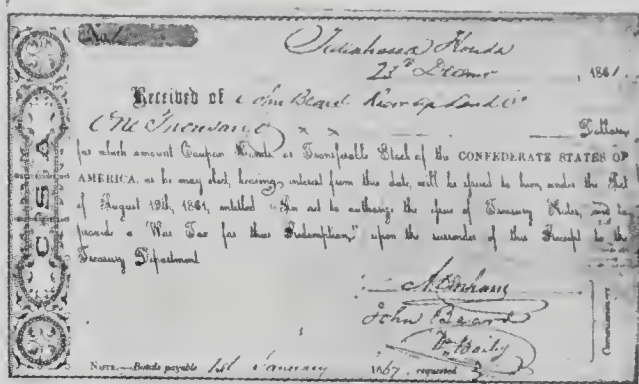 No.
Tallahassee Florida
23d Decmr , 1861.
Received of John Beard Receiver &c
One Thousand x x Dollars
for which amount Coupon Bonds or Transferable Stock of the CONFEDERATE STATES OF
AMERICA, as he may elect, bearing interest from this date, will be issued to him, under the Act
of August 19th, 1861, entitled "An act to authorize the issue of Treasury Notes, and to
provide a War Tax for their Redemption," upon the surrender of this Receipt to the
Treasury Department
C S A
John Beard
Wm Bailey
Commissioners
NOTE.—Bonds payable 1st January 1867, requested